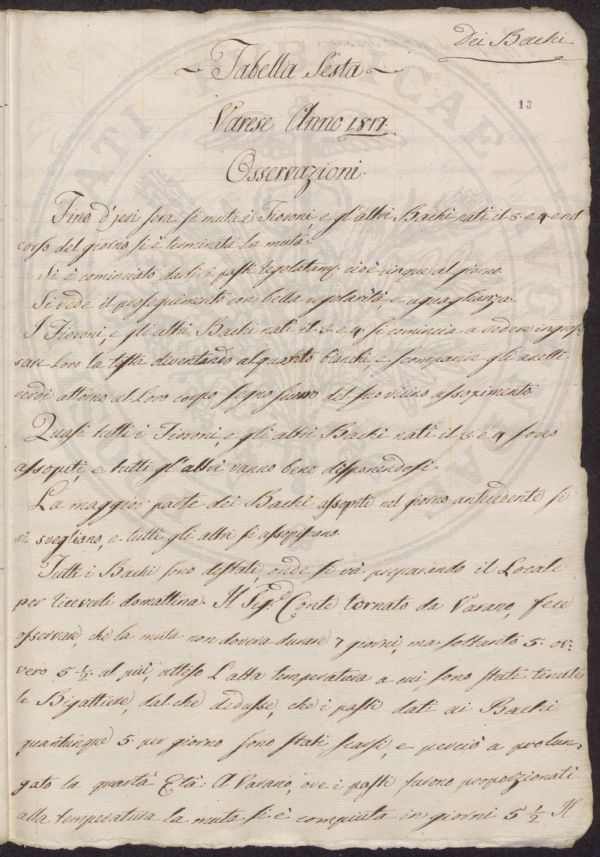 Dei Bachi
Tabella Sesta
13
Varese Anno 1817
Osservazioni
Fino d'jeri sera si mutò i Fioroni, e gl'altri Bachi nati il 3 e 4 e nel
corso del giorno si è terminata la muta.
Si è cominciato dare i pasti regolatam.e cioè cinque al giorno.
Si vede il proseguimento con bella regolarità, e uguaglianza.
I Fioroni, e gli altri Bachi nati il 3 e 4 si comincia a vedere ingros
sare loro la testa diventando alquanto bianchi, e scomparire gli anelli
verdi attorno al loro corpo segno sicuro del suo vicino assopimento
Quasi tutti i Fioroni, e gli altri Bachi nati il 3 e 4 sono
assopiti, e tutti gl'altri vanno bene disponendosi.
La maggior parte dei Bachi assopiti nel giorno antecedente si
si svegliano, e tutti gli altri si assopirano.
Tutti i Bachi sono destati, onde si và preparando il Locale
per riceverli domattina. Il Sig.r Conte tornato da Varano, fece
osservare, che la muta non doveva durare 7 giorni, ma soltanto 5. ov
vero 5 ½ al più, atteso l'alta temperatura a cui sono state tenute
le Bigattiere, dal che dedusse, che i pasti dati ai Bachi
quantunque 5 per giorno sono stati scarsi, e perciò a prolun
gato la quarta Età. A Varano, ove i pasti furono proporzionati
alla temperatura la muta si è compiuta in giorni 5 ½. Il